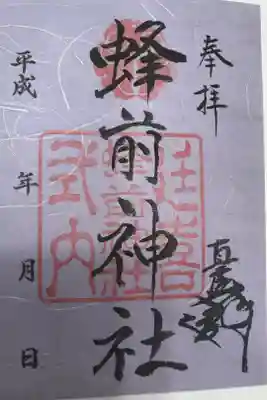 奉拝
蜂前神社
延喜
式内
平成 年 月 日